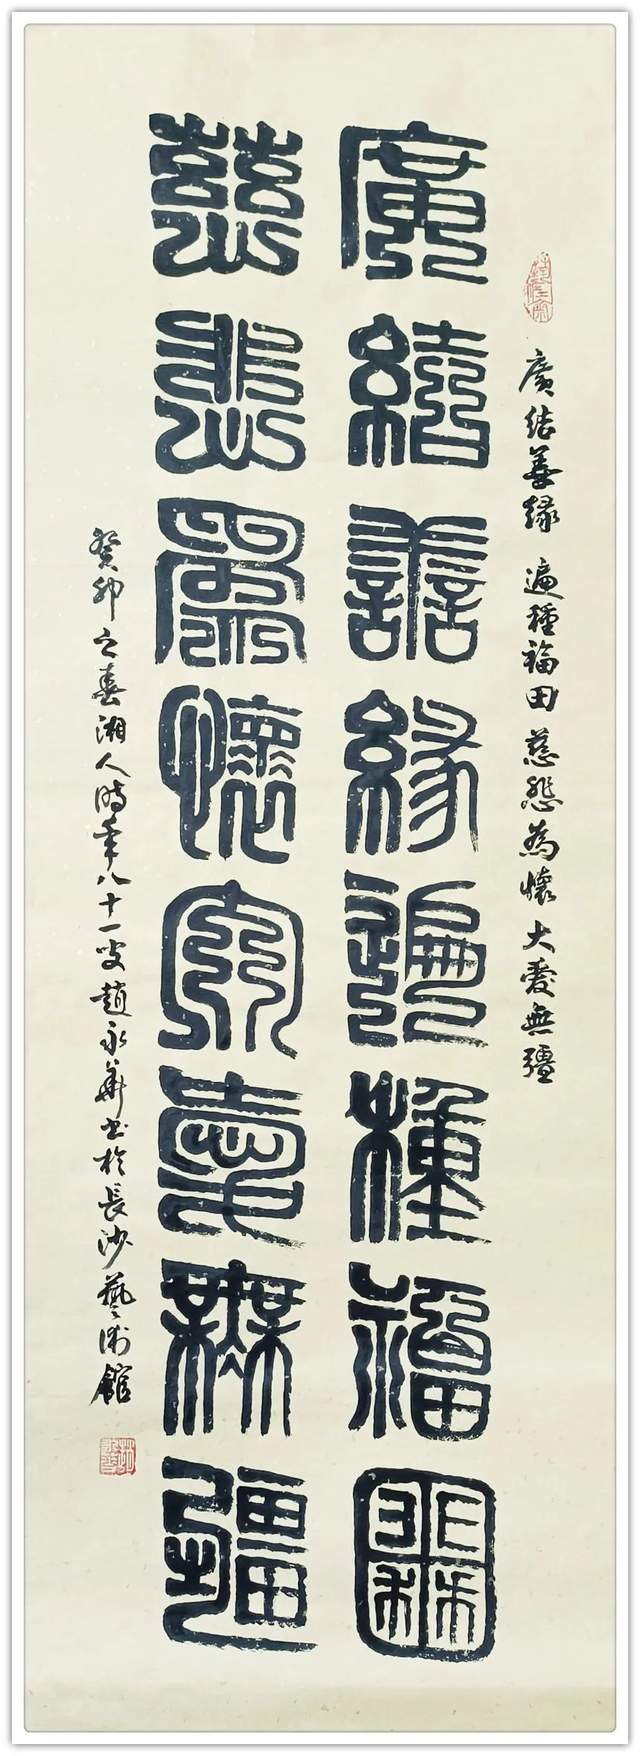 廣結善緣 遍種福田 慈悲為懷 大愛無疆
廣結善緣遍種福田
慈悲為懷大愛無疆
癸卯之春湘人時年八十一叟趙永華書於長沙藝術館